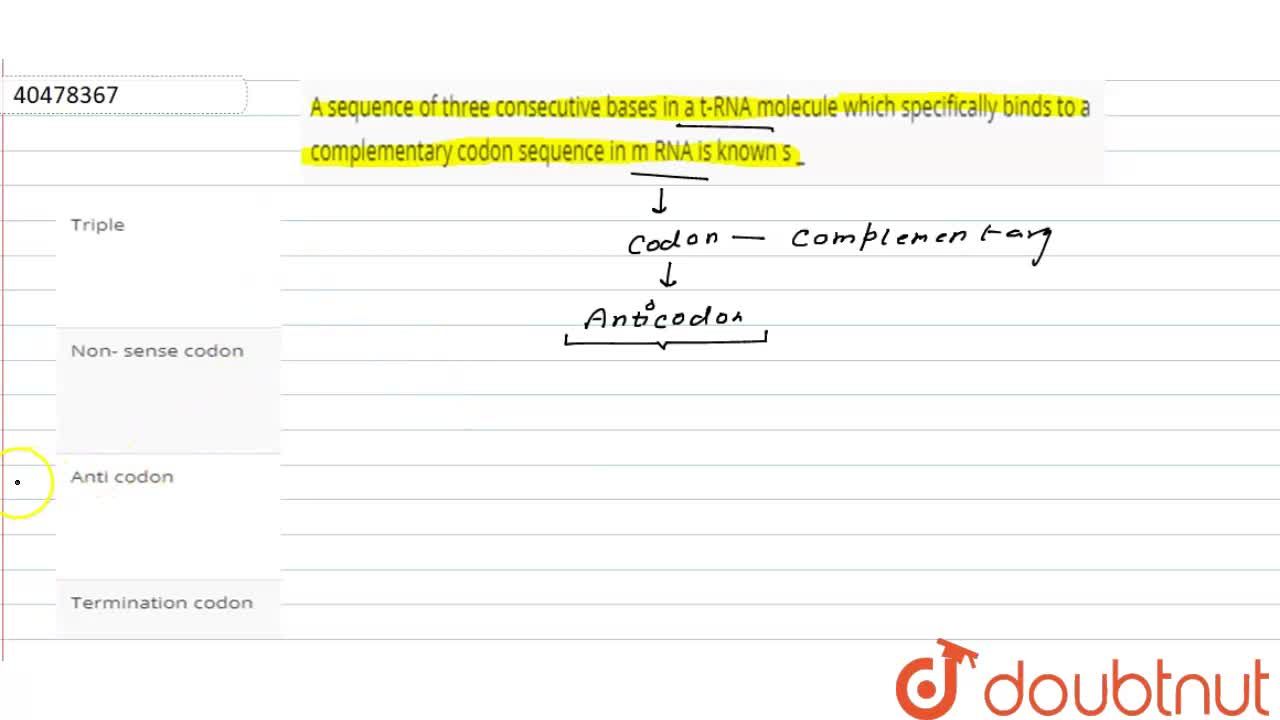 40478367
A sequence of three consecutive bases in a t-RNA molecule which specifically binds to a
complementary codon sequence in m RNA is known s _
Triple
codon — complementary
Anticodon
Non- sense codon
Anti codon
Termination codon
doubtnut